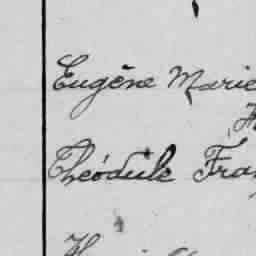 Eugène Marie
Théodule Fra